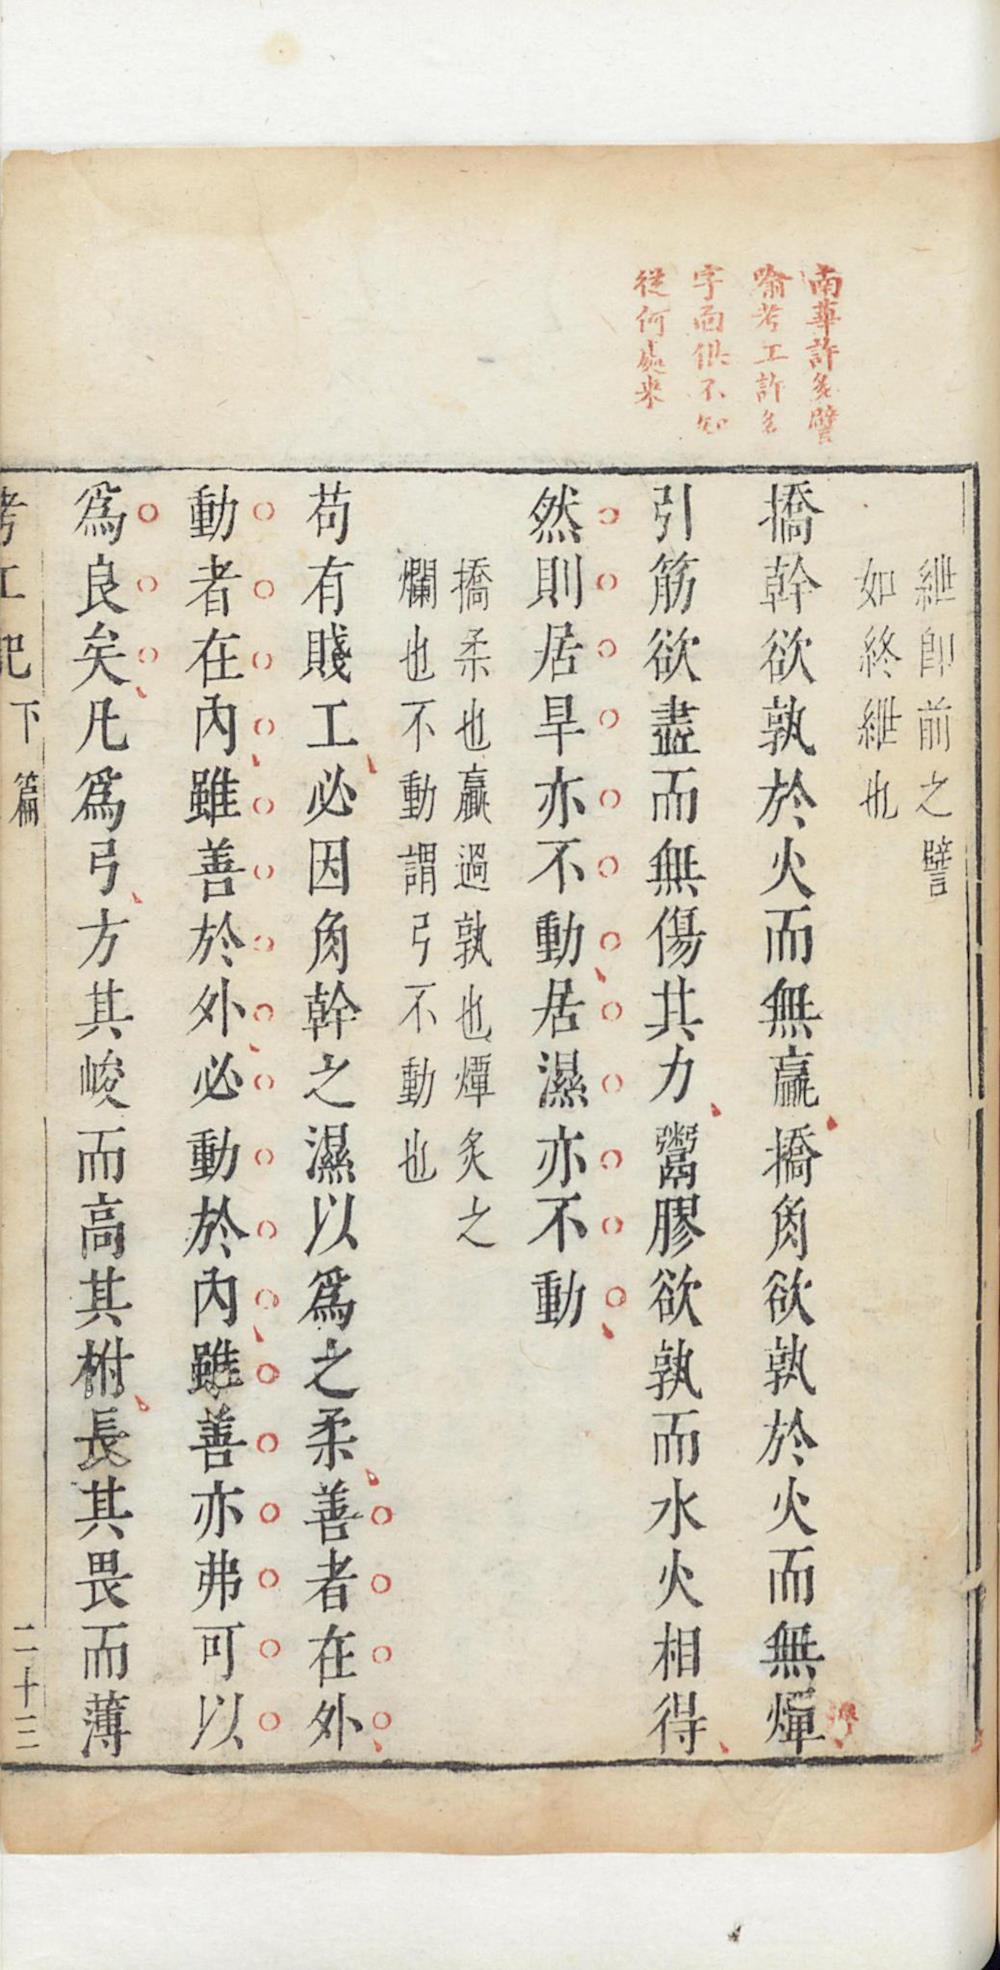 南華許多譬
喻考工許多
字面俱不知
從何處來
紲卽前之譬
如終紲也
撟幹欲孰於火而無贏撟角欲孰於火而無燂
引筋欲盡而無傷其力鬻膠欲孰而水火相得
然則居旱亦不動居濕亦不動
撟柔也贏過孰也燂炙之
爛也不動謂弓不動也
苟有賤工必因角幹之濕以爲之柔善者在外
動者在內雖善於外必動於內雖善亦弗可以
爲良矣凡爲弓方其峻而高其柎長其畏而薄
考工記下篇 二十三